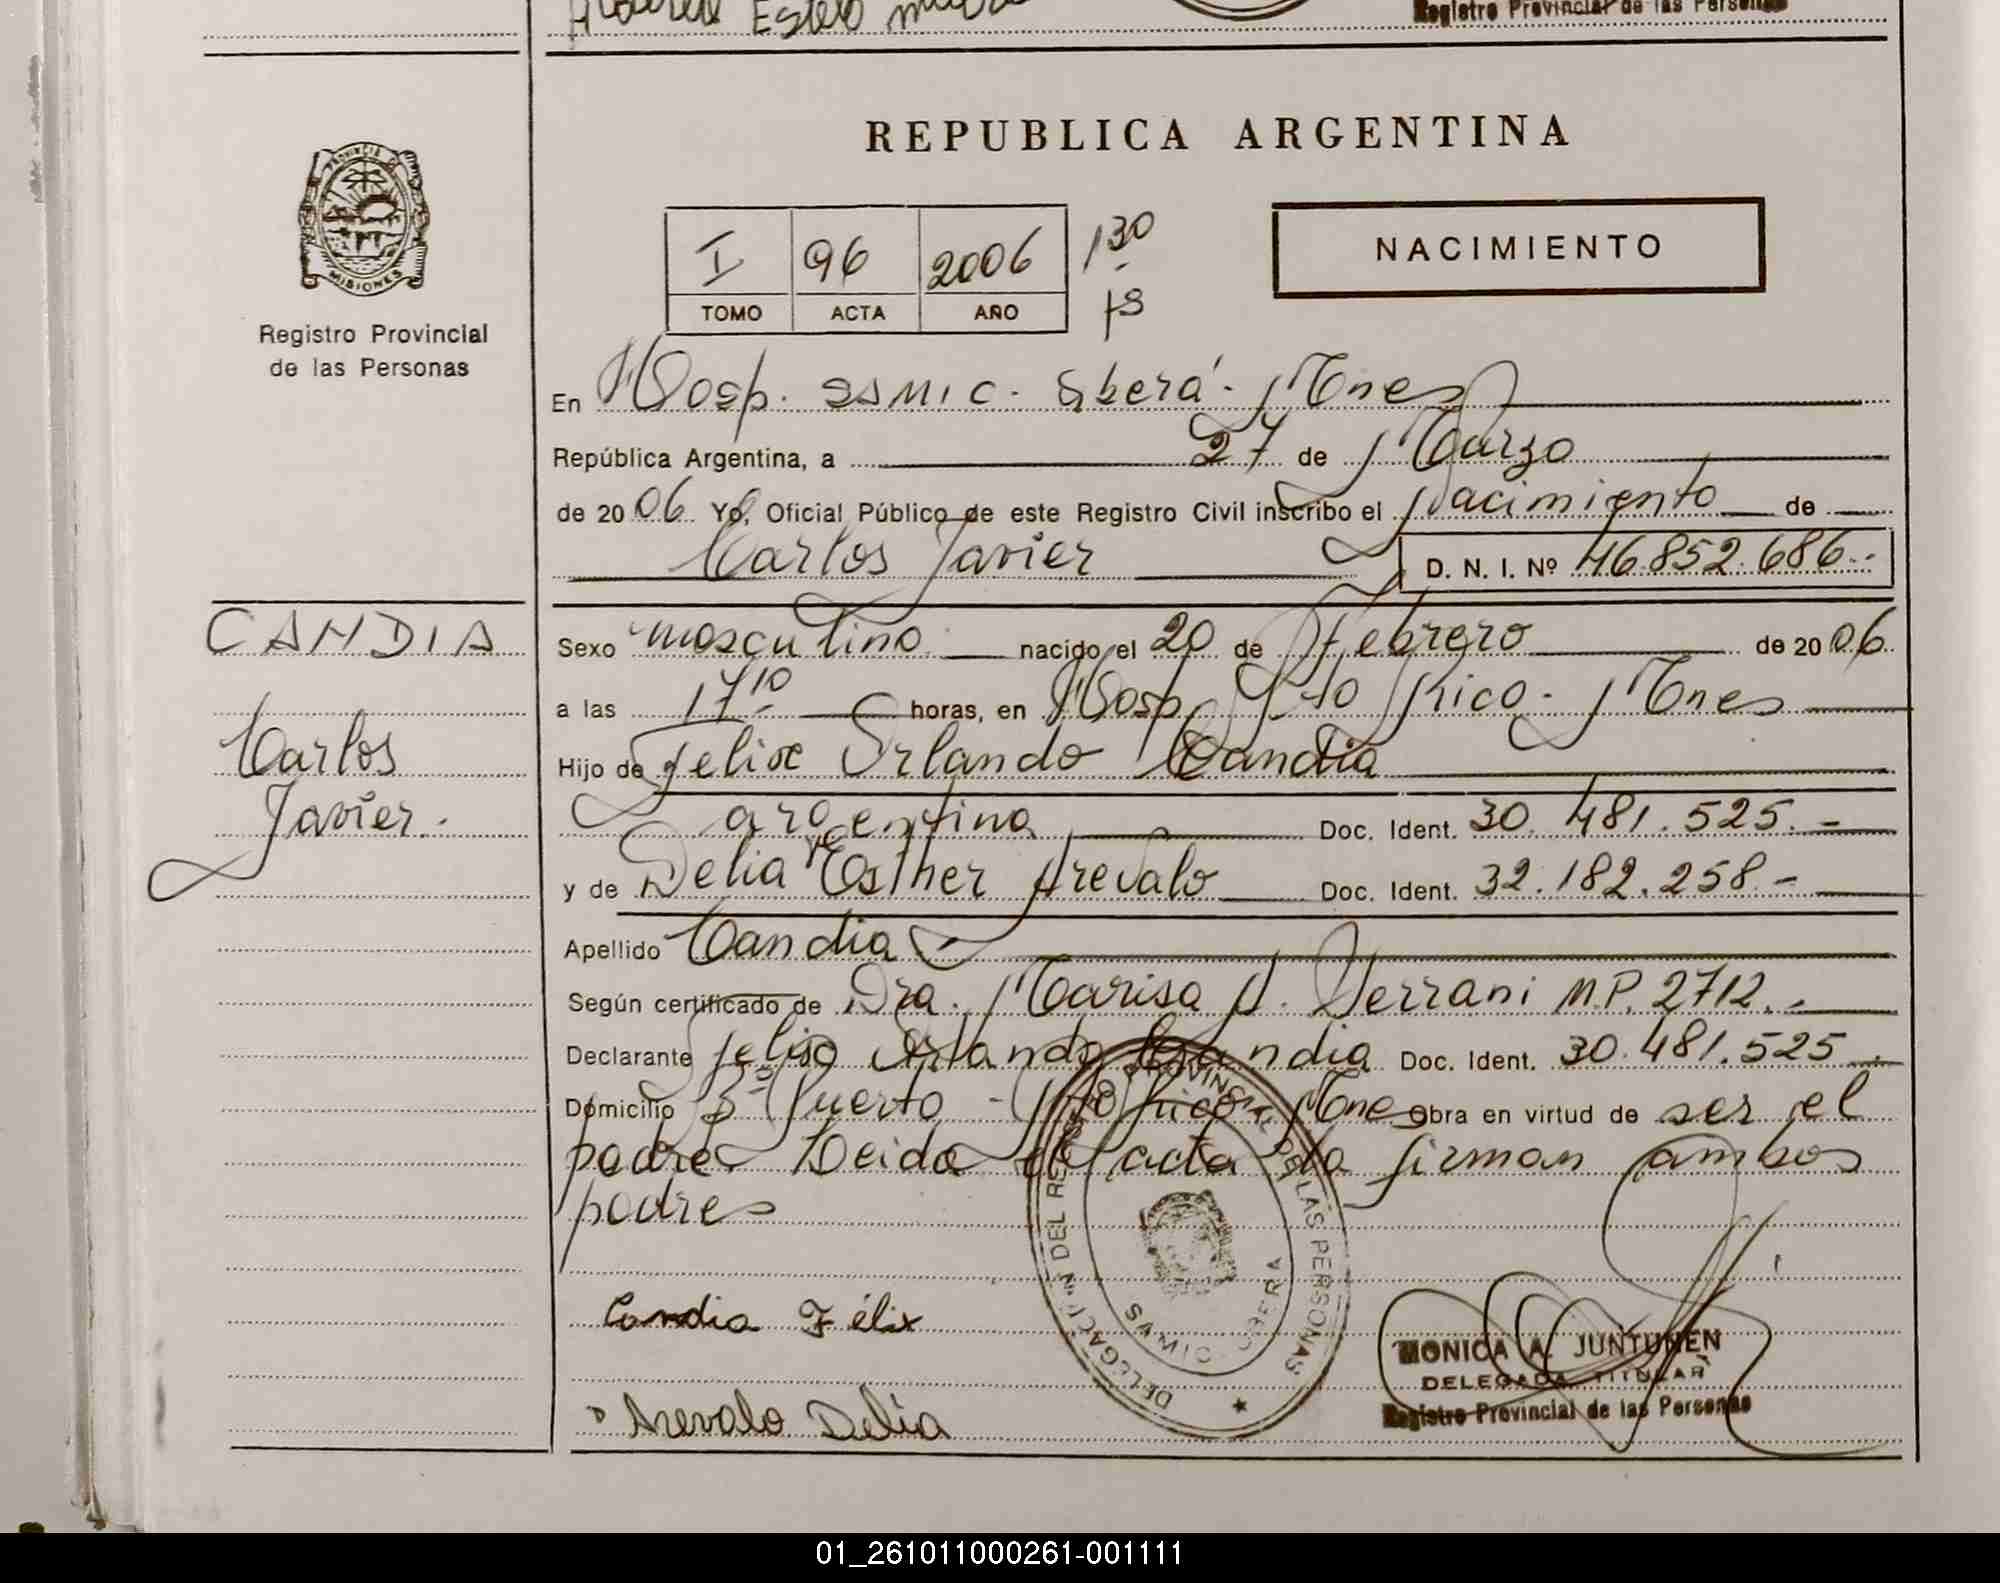 Registro Provincial de las Personas
REPUBLICA ARGENTINA
PROVINCIA DE
MISIONES
Registro Provincial
de las Personas
I 96 2006 1 30
TOMO ACTA AÑO
NACIMIENTO
En Hosp. SAMIC. Eberá. Mnes
República Argentina, a 27 de Marzo
de 2006 Yo, Oficial Público de este Registro Civil inscribo el Nacimiento de
Carlos Javier D. N. I. Nº 46.852.686.-
CANDIA
Carlos
Javier.
Sexo masculino nacido el 20 de Febrero de 2006
a las 17 10 horas, en Hosp. Pto Rico - Mnes
Hijo de Felix Orlando Candia
argentino Doc. Ident. 30.481.525.-
y de Delia Esther Arevalo Doc. Ident. 32.182.258.-
Apellido Candia
Según certificado de Dra. Marisa A. Ferrani M.P. 2712.-
Declarante Felix Orlando Candia Doc. Ident. 30.481.525.-
Domicilio Bº Puerto - Pto Rico - Mnes Obra en virtud de ser el
padre Leida el acta la firman ambos
padres
DELEGACION DEL REGISTRO PROVINCIAL DE LAS PERSONAS
Candia Félix
Arevalo Delia
MONICA A. JUNTUNEN
DELEGADA TITULAR
Registro Provincial de las Personas
01_261011000261-001111